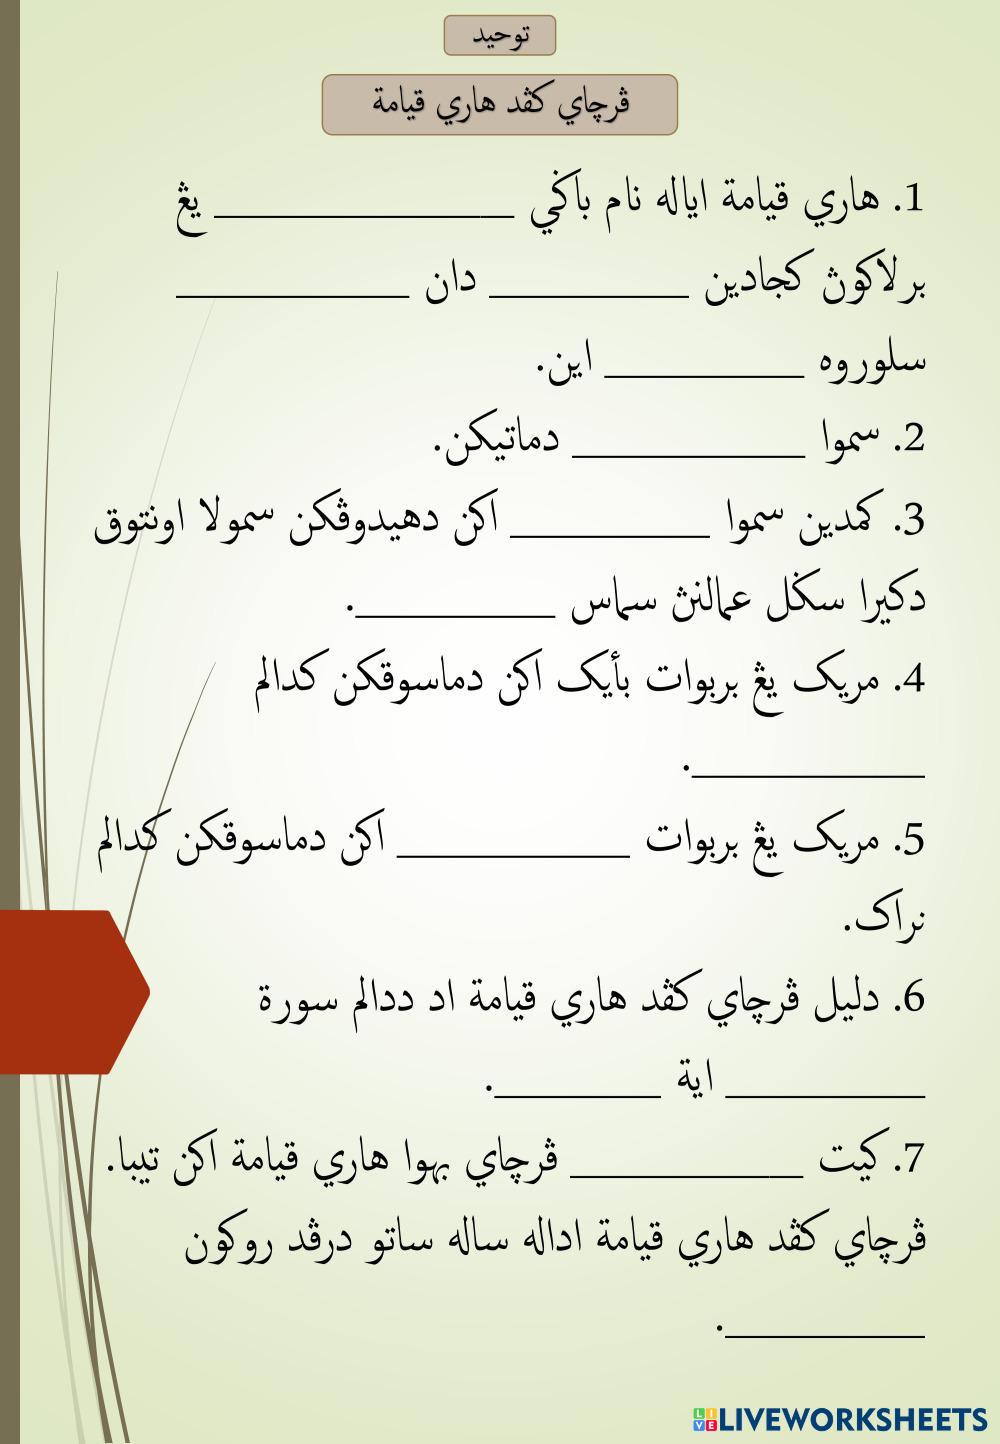 توحيد
ڤرچاي كڤد هاري قيامة
1. هاري قيامة اياله نام باݢي __________________ يڠ
برلاكوڽ كجادين ____________ دان ______________
سلوروه ____________ اين.
2. سموا ______________ دماتيكن.
3. كمدين سموا ____________ اكن دهيدوڤكن سمولا اونتوق
دكيرا سݢل عمالنڽ سماس ____________.
4. مريک يڠ بربوات بأيک اكن دماسوقكن كدالم
______________.
5. مريک يڠ بربوات ______________ اكن دماسوقكن كدالم
نراک.
6. دليل ڤرچاي كڤد هاري قيامة اد ددالم سورة
____________ اية __________.
7. كيت ______________ ڤرچاي بهوا هاري قيامة اكن تيبا.
ڤرچاي كڤد هاري قيامة اداله ساله ساتو درڤد روكون
____________.
LIVE LIVEWORKSHEETS